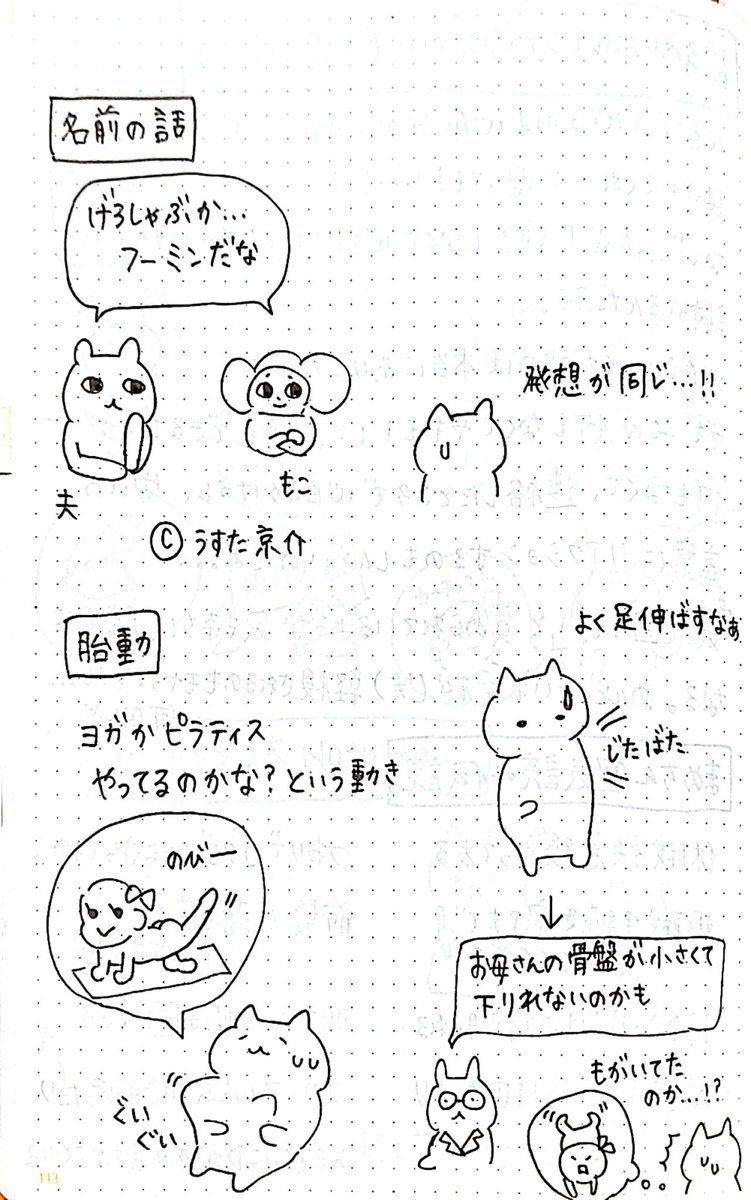 名前の話
げろしゃぶか…
フーミンだな
発想が同じ…!!
夫
もこ
Ⓒうすた京介
胎動
よく足伸ばすなぁ
ヨガかピラティス
やってるのかな?という動き
じたばた
のびー
お母さんの骨盤が小さくて
下りれないのかも
ぐい
ぐい
もがいてた
のか…!?
113